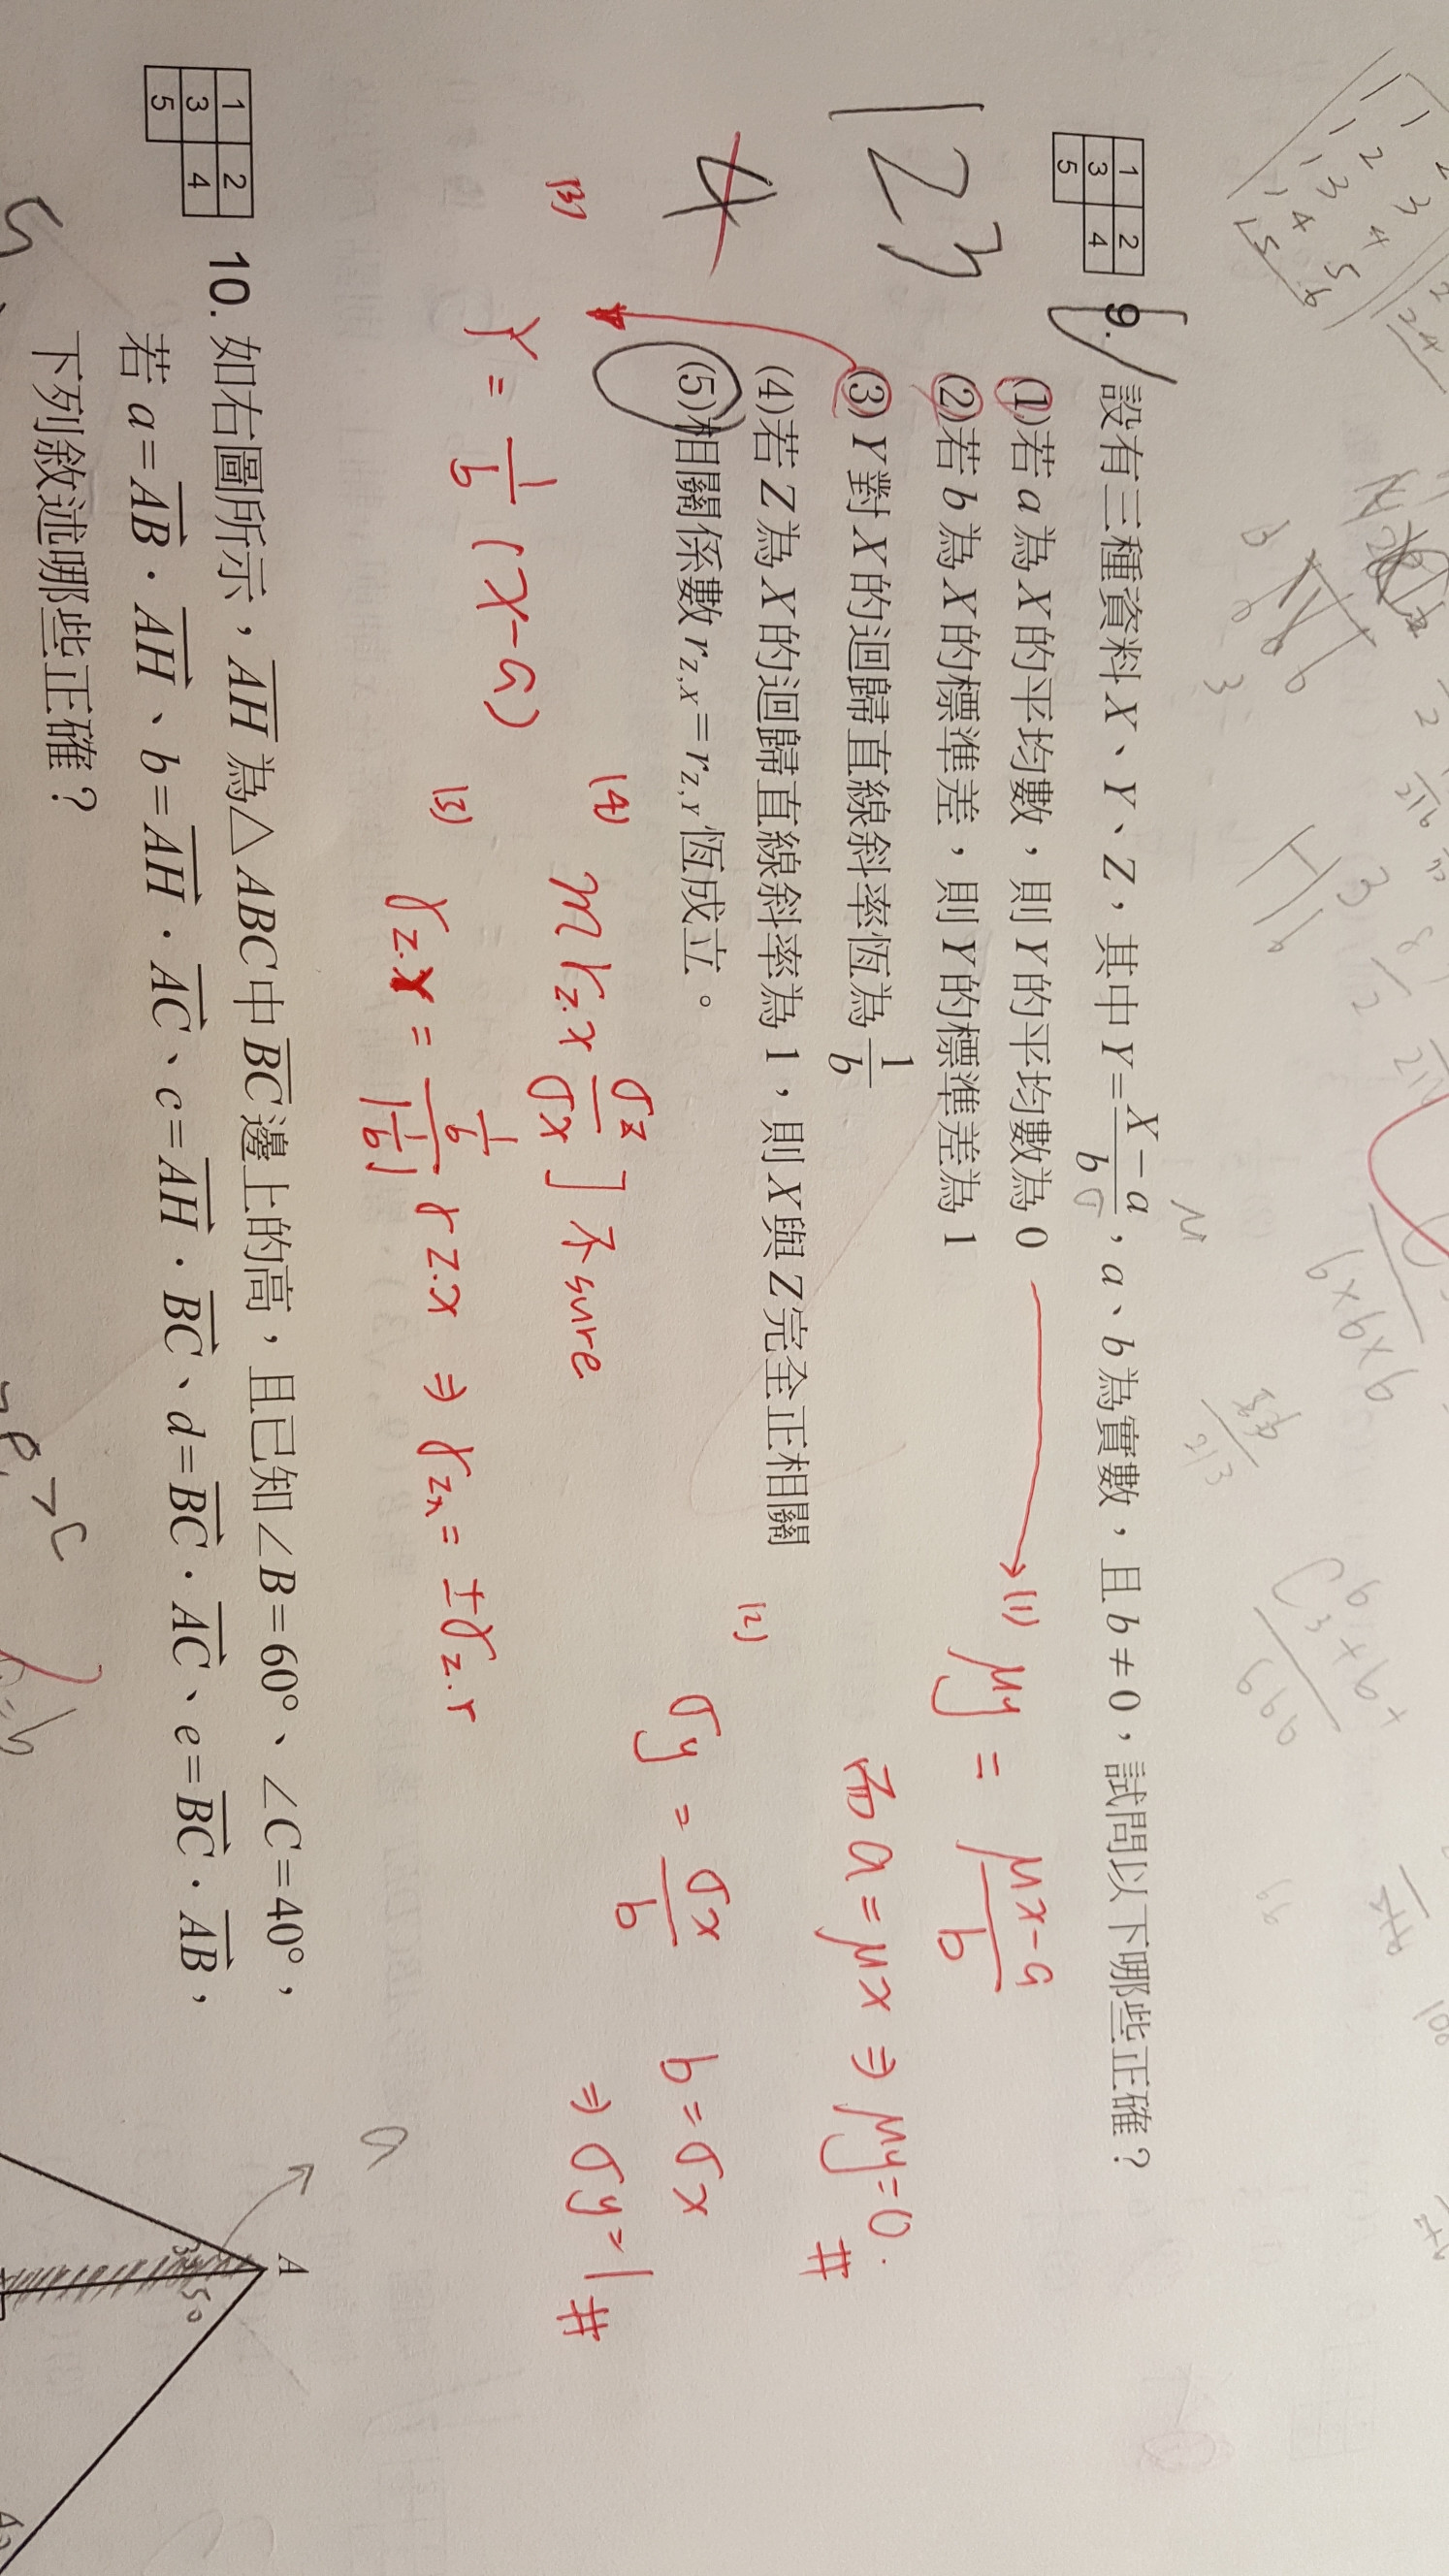 9. 設有三種資料X、Y、Z，其中Y=\frac{X-a}{b}，a、b為實數，且b≠0，試問以下哪些正確？
(1)若a為X的平均數，則Y的平均數為0
(2)若b為X的標準差，則Y的標準差為1
(3)Y對X的迴歸直線斜率恆為\frac{1}{b}
(4)若Z為X的迴歸直線斜率為1，則X與Z完全正相關
(5)相關係數r_{Z,X}=r_{Z,Y}恆成立。
1 2
3 4
5
123
4
(1) μy = \frac{μx-a}{b}
而 a=μx ⇒ μy=0. #
(2) σy = \frac{σx}{b} b=σx
⇒ σy=1 #
(3)
Y = \frac{1}{b} (X-a)
(4) m r_{z.x} \frac{σz}{σx} ] 不 sure
r_{z.Y} = \frac{\frac{1}{b}}{|\frac{1}{b}|} r_{z.x} ⇒ r_{zx} = ±r_{z.Y}
1 2
3 4
5
10. 如右圖所示，\overline{AH}為△ABC中\overline{BC}邊上的高，且已知∠B=60°、∠C=40°，
若a=\overrightarrow{AB}·\overrightarrow{AH}、b=\overrightarrow{AH}·\overrightarrow{AC}、c=\overrightarrow{AH}·\overrightarrow{BC}、d=\overrightarrow{BC}·\overrightarrow{AC}、e=\overrightarrow{BC}·\overrightarrow{AB}，
下列敘述哪些正確？
A